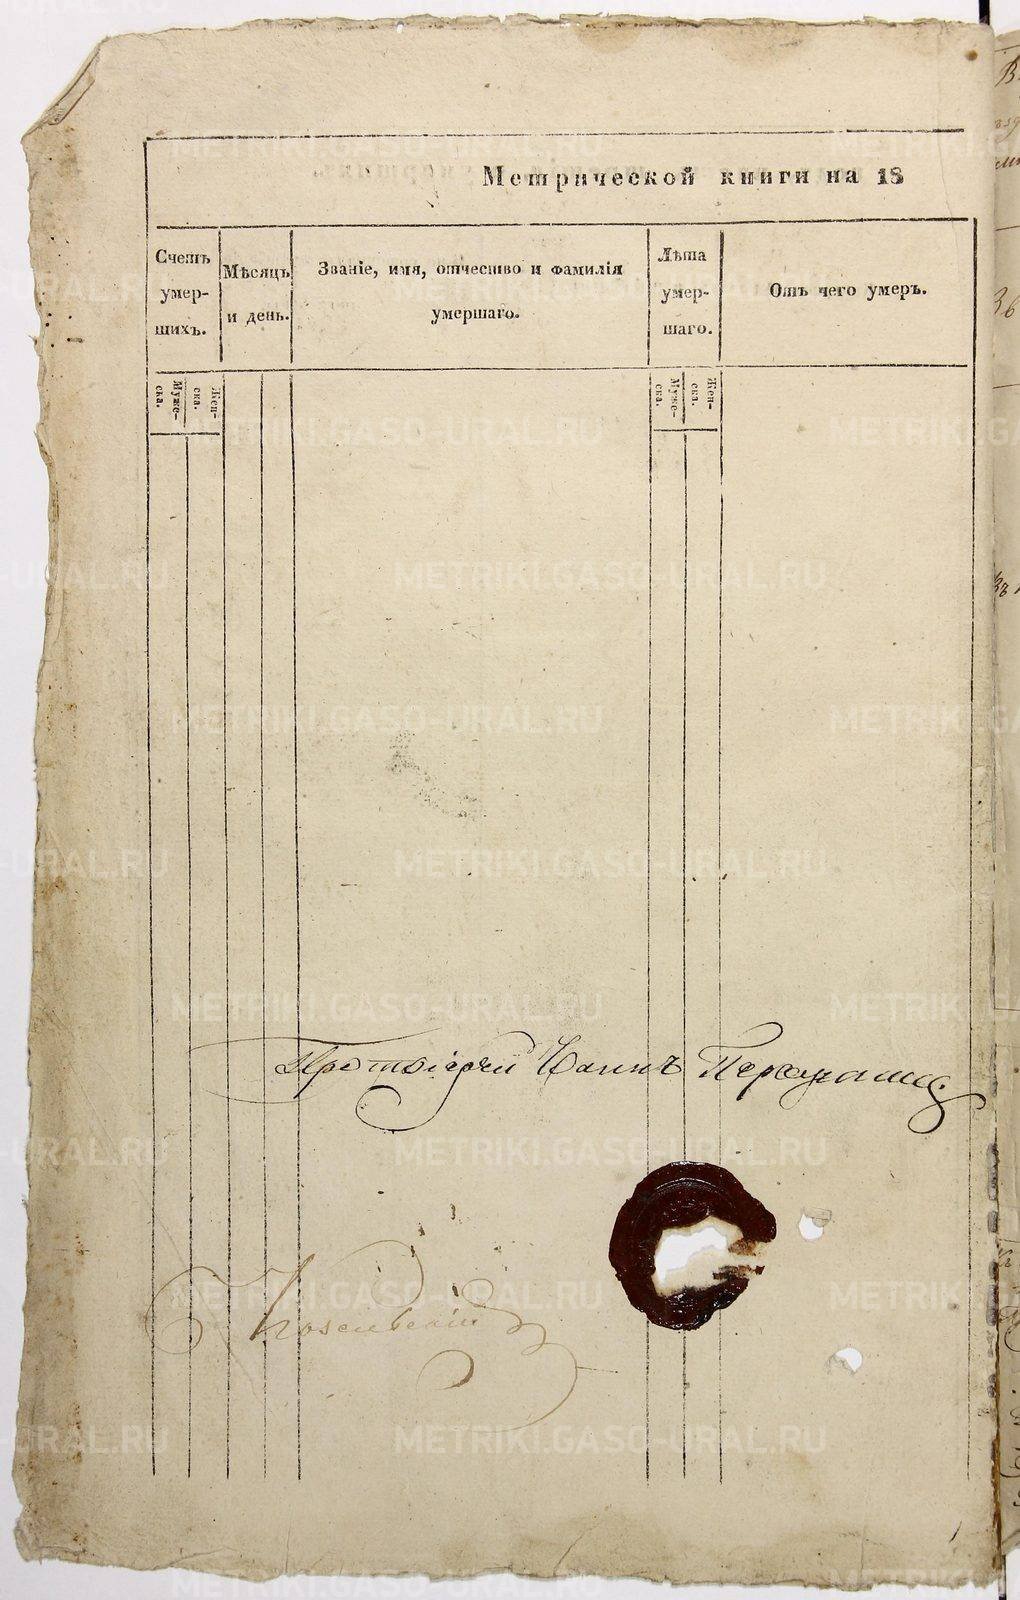 Метрической книги на 18
Счетъ умер-шихъ.
Мѣсяцъ и день.
Званіе, имя, отчество и фамилія умершаго.
Лѣта умер-шаго.
Отъ чего умеръ.
Муже-ска.
Жен-ска.
Муже-ска.
Жен-ска.
Протоіерей Іоаннъ
METRIKI.GASO-URAL.RU